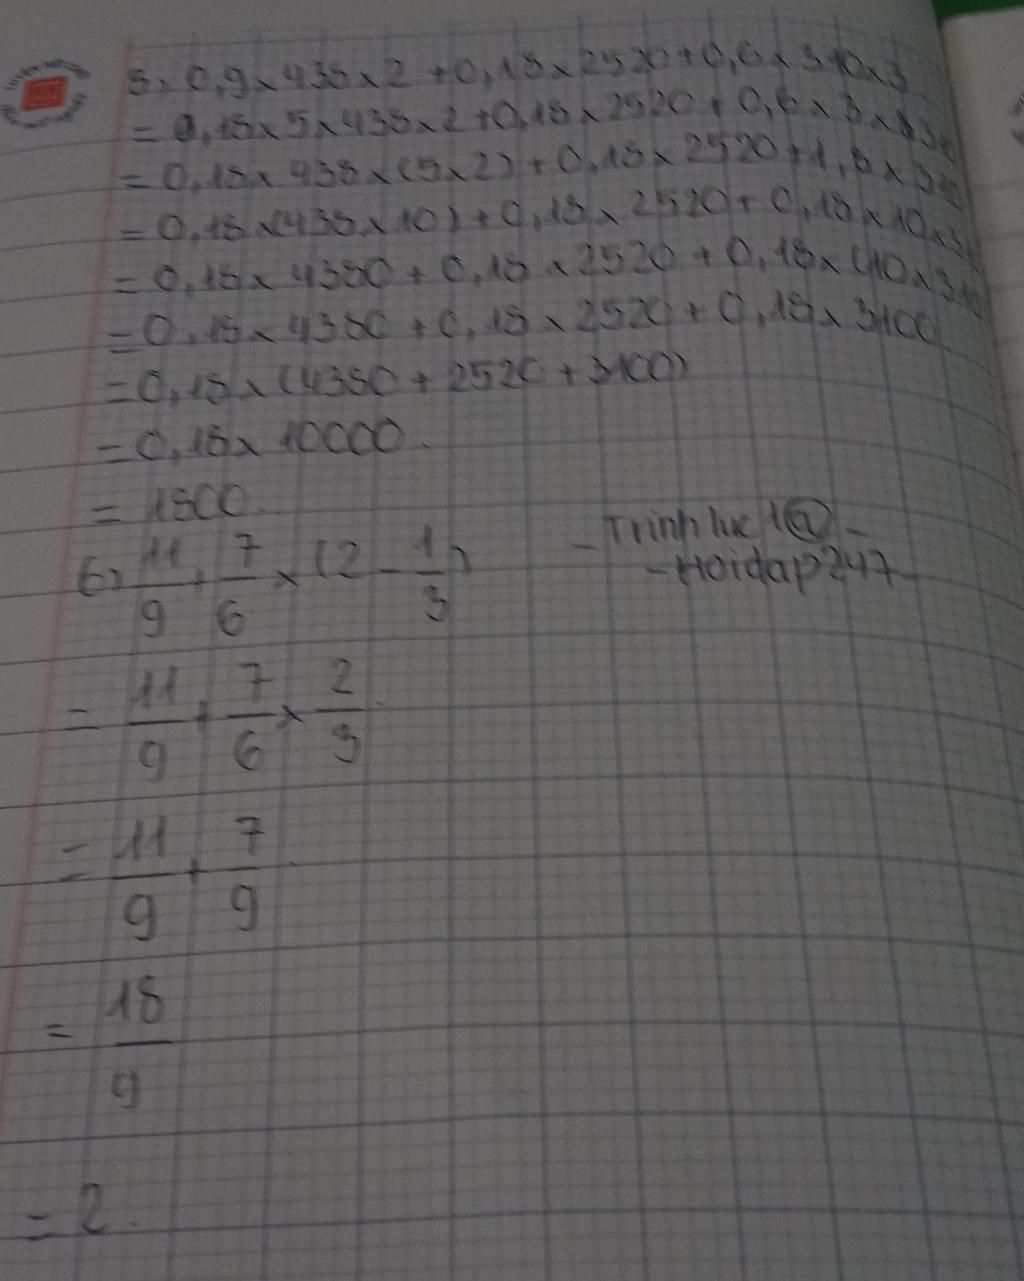 5, 0,9 x 438 x 2 + 0,18 x 2520 + 0,6 x 310 x 3
= 0,18 x 5 x 438 x 2 + 0,18 x 2520 + 0,6 x 3 x 310
= 0,18 x 438 x (5 x 2) + 0,18 x 2520 + 1,8 x 310
= 0,18 x (438 x 10) + 0,18 x 2520 + 0,18 x 10 x 310
= 0,18 x 4380 + 0,18 x 2520 + 0,18 x (10 x 310
= 0,18 x 4380 + 0,18 x 2520 + 0,18 x 3100
= 0,18 x (4380 + 2520 + 3100)
= 0,18 x 10000.
= 1800.
6, 11/9 + 7/6 x (2 - 1/3)
- Trinh luc 1@ -
- Hoidap247 -
= 11/9 + 7/6 x 2/3
= 11/9 + 7/9
= 18/9
= 2.